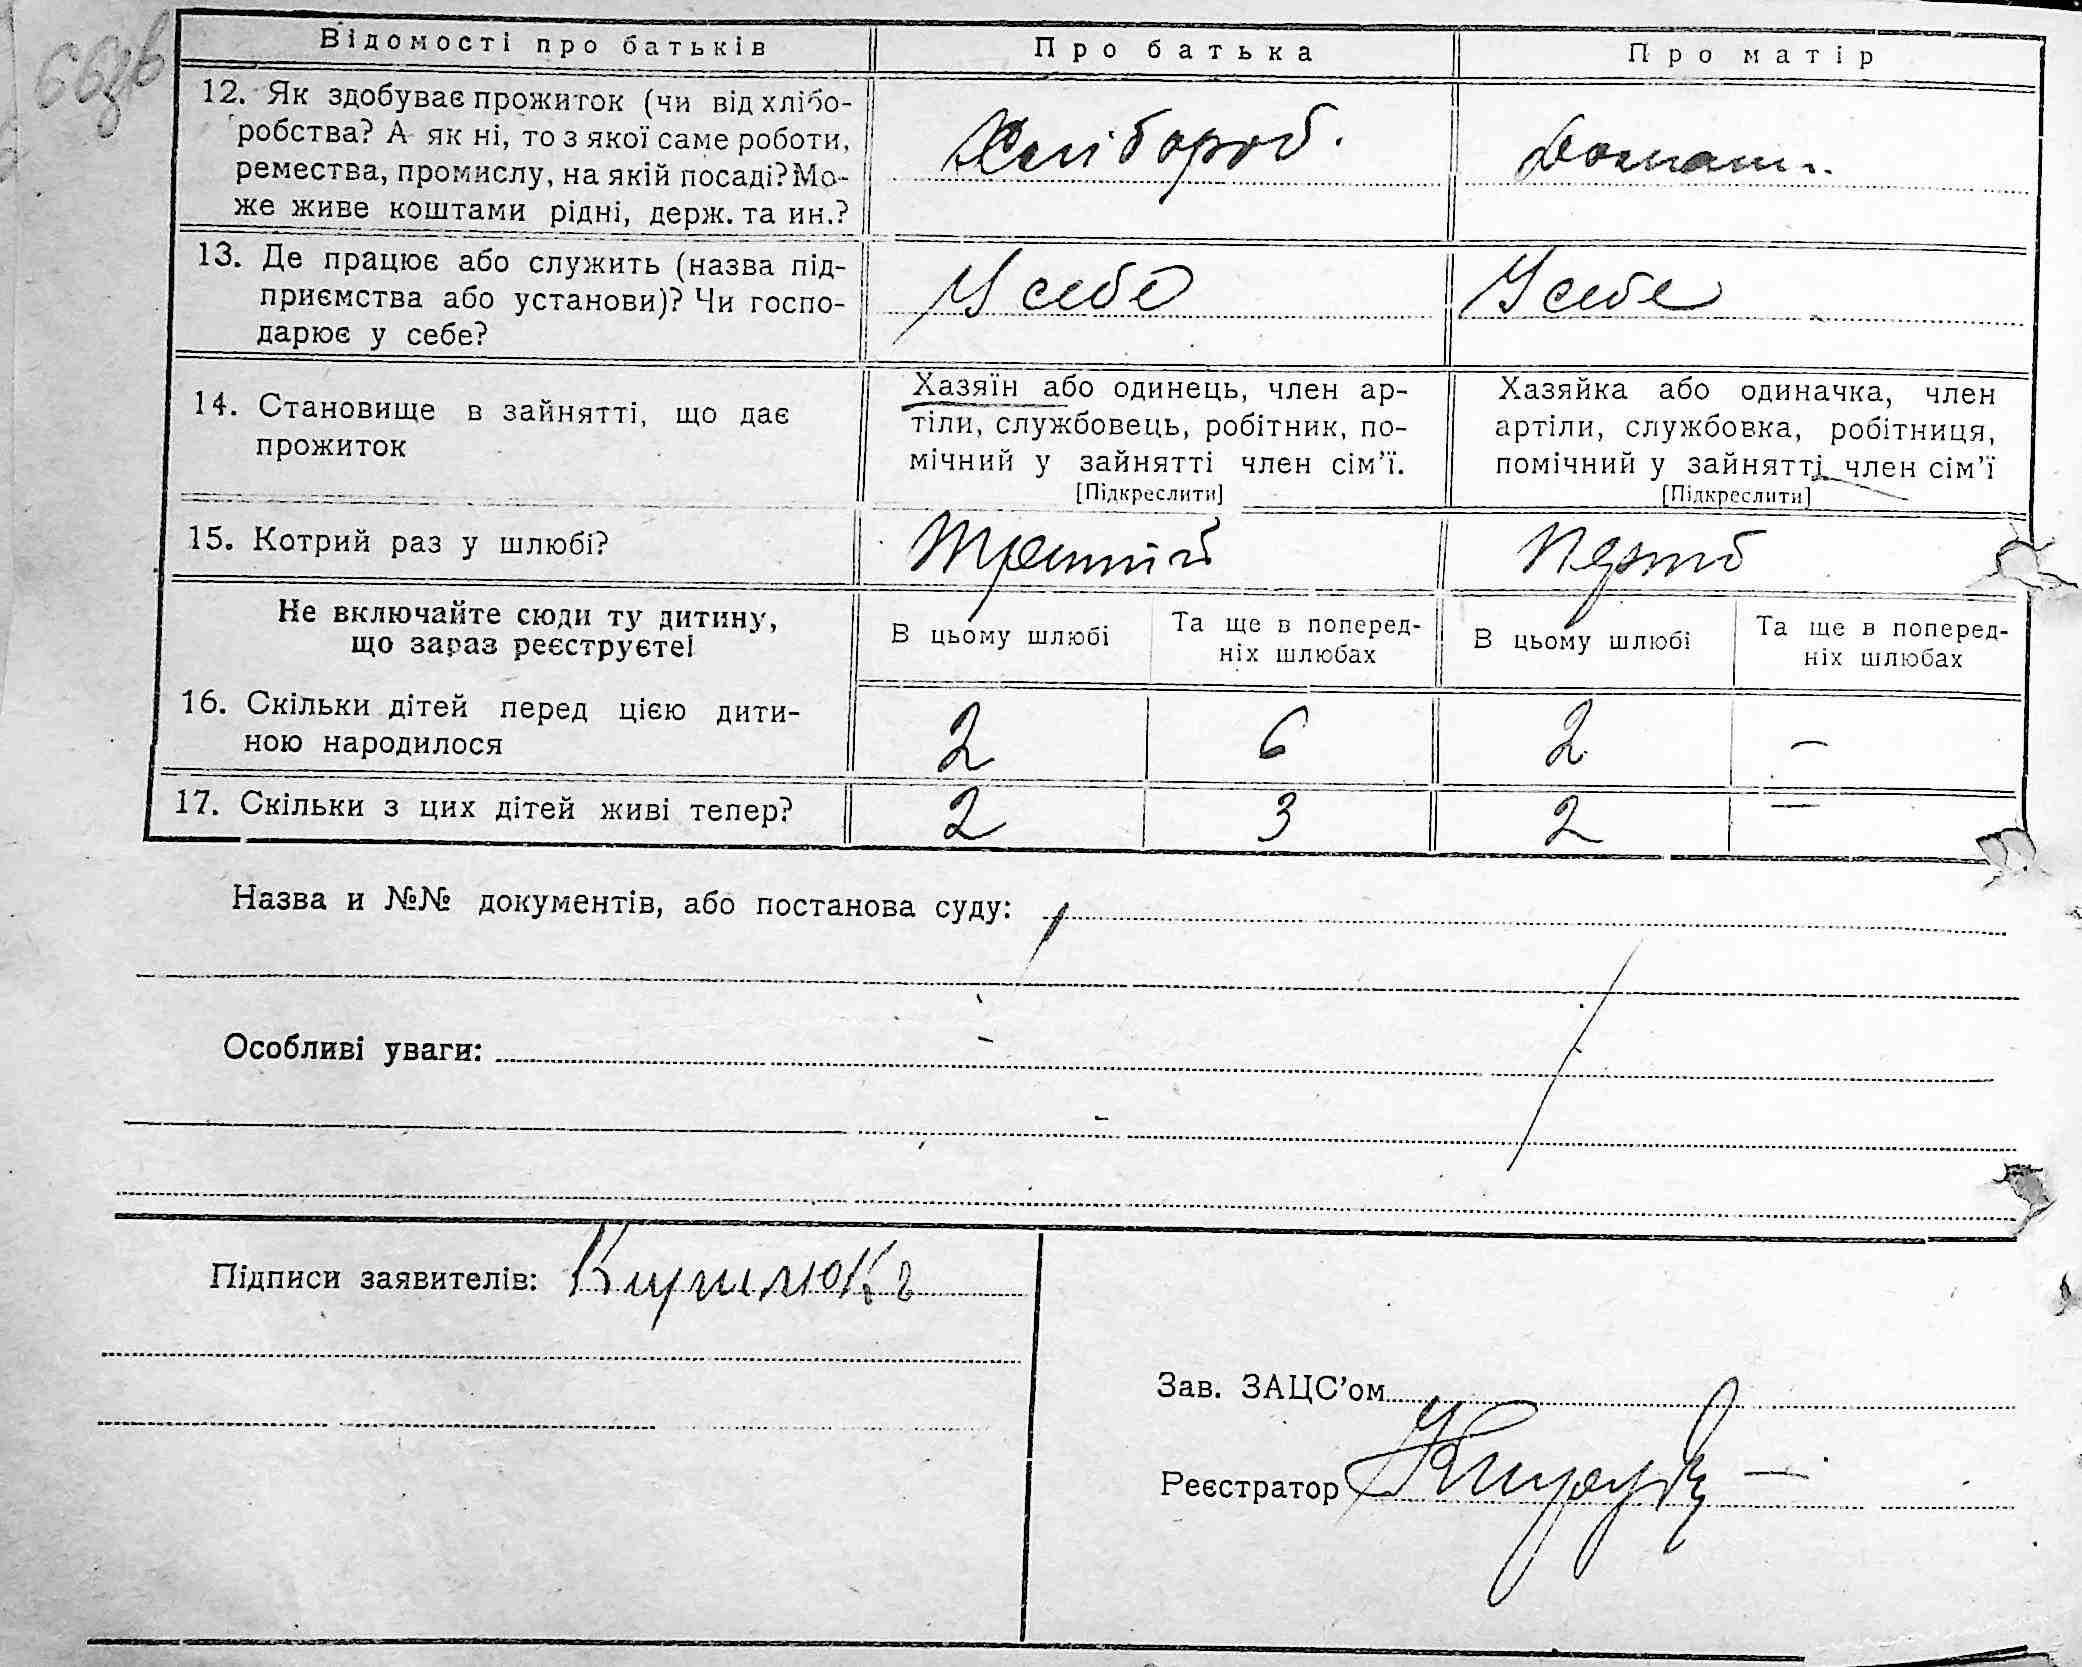 66зв
Відомості про батьків Про батька Про матір
12. Як здобуває прожиток (чи від хлібо-
робства? А як ні, то з якої саме роботи,
ремества, промислу, на якій посаді? Мо-
же живе коштами рідні, держ. та ин.?
Хлібороб. Домаш..
13. Де працює або служить (назва під-
приємства або установи)? Чи госпо-
дарює у себе?
У себе У себе
14. Становище в зайнятті, що дає
прожиток
Хазяїн або одинець, член ар-
тіли, службовець, робітник, по-
мічний у зайнятті член сім’ї.
[Підкреслити]
Хазяйка або одиначка, член
артіли, службовка, робітниця,
помічний у зайнятті член сім’ї
[Підкреслити]
15. Котрий раз у шлюбі? Третій
Не включайте сюди ту дитину,
що зараз реєструєте!
В цьому шлюбі Та ще в поперед-
ніх шлюбах
В цьому шлюбі Та ще в поперед-
ніх шлюбах
16. Скільки дітей перед цією дити-
ною народилося
2 6 2 –
17. Скільки з цих дітей живі тепер? 2 3 2 –
Назва и №№ документів, або постанова суду:
Особливі уваги:
Підписи заявителів: Кирилюкъ
Зав. ЗАЦС’ом
Реєстратор